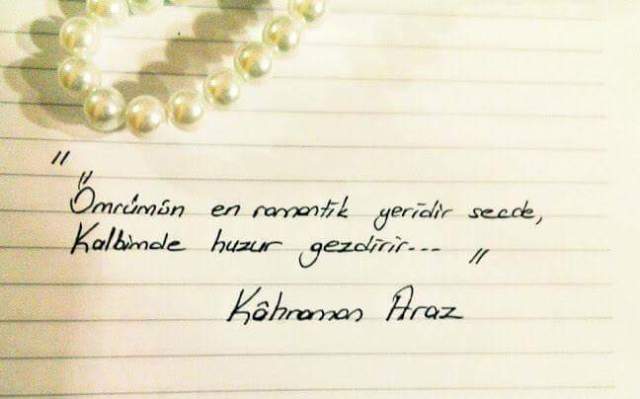 "
Ömrümün en romantik yeridir secde,
Kalbimde huzur gezdirir... "
Kâhraman Araz